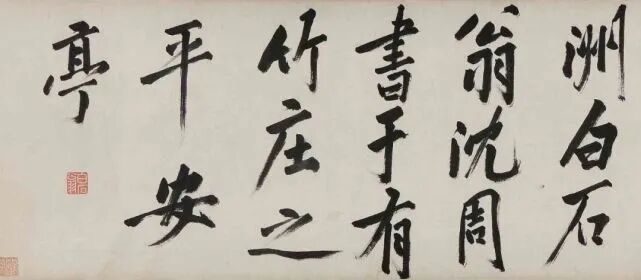 洲白石
翁沈周
書于有
竹庄之
平安
亭